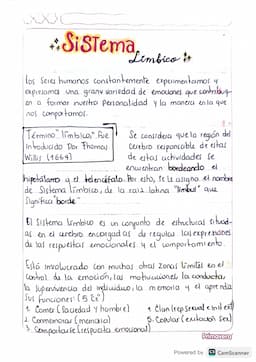 Sistema
Límbico
Los seres humanos constantemente experimentamos y
expresamos una gran variedad de emociones que contribuy-
en a formar nuestra personalidad y la manera en la que
nos comportamos.
Término "límbicus" Fue
introducido por Thomas
Willis (1664)
Se considera que la región del
cerebro responsable de estas
de estas actividades se
encuentran bordeando el
hipotálamo y el telencéfalo. Por esto, se le asignó el nombre
de Sistema límbico, de la raíz latina "limbus" que
significa "borde"
El Sistema límbico es un conjunto de estructuras situad-
as en el cerebro encargadas de regular las expresiones
de las respuestas emocionales y el comportamiento.
Está involucrado con muchas otras zonas límites en el
control de la emoción, las motivaciones, la conducta,
la supervivencia del individuo, la memoria y el aprendi
sus funciones: (5 "C")
1. Comer (saciedad y hambre)
2. Conmemorar (memoria)
3. Comportarse (respuesta emocional)
5. Copular (excitación sex)
Primavera
Powered by CamScanner